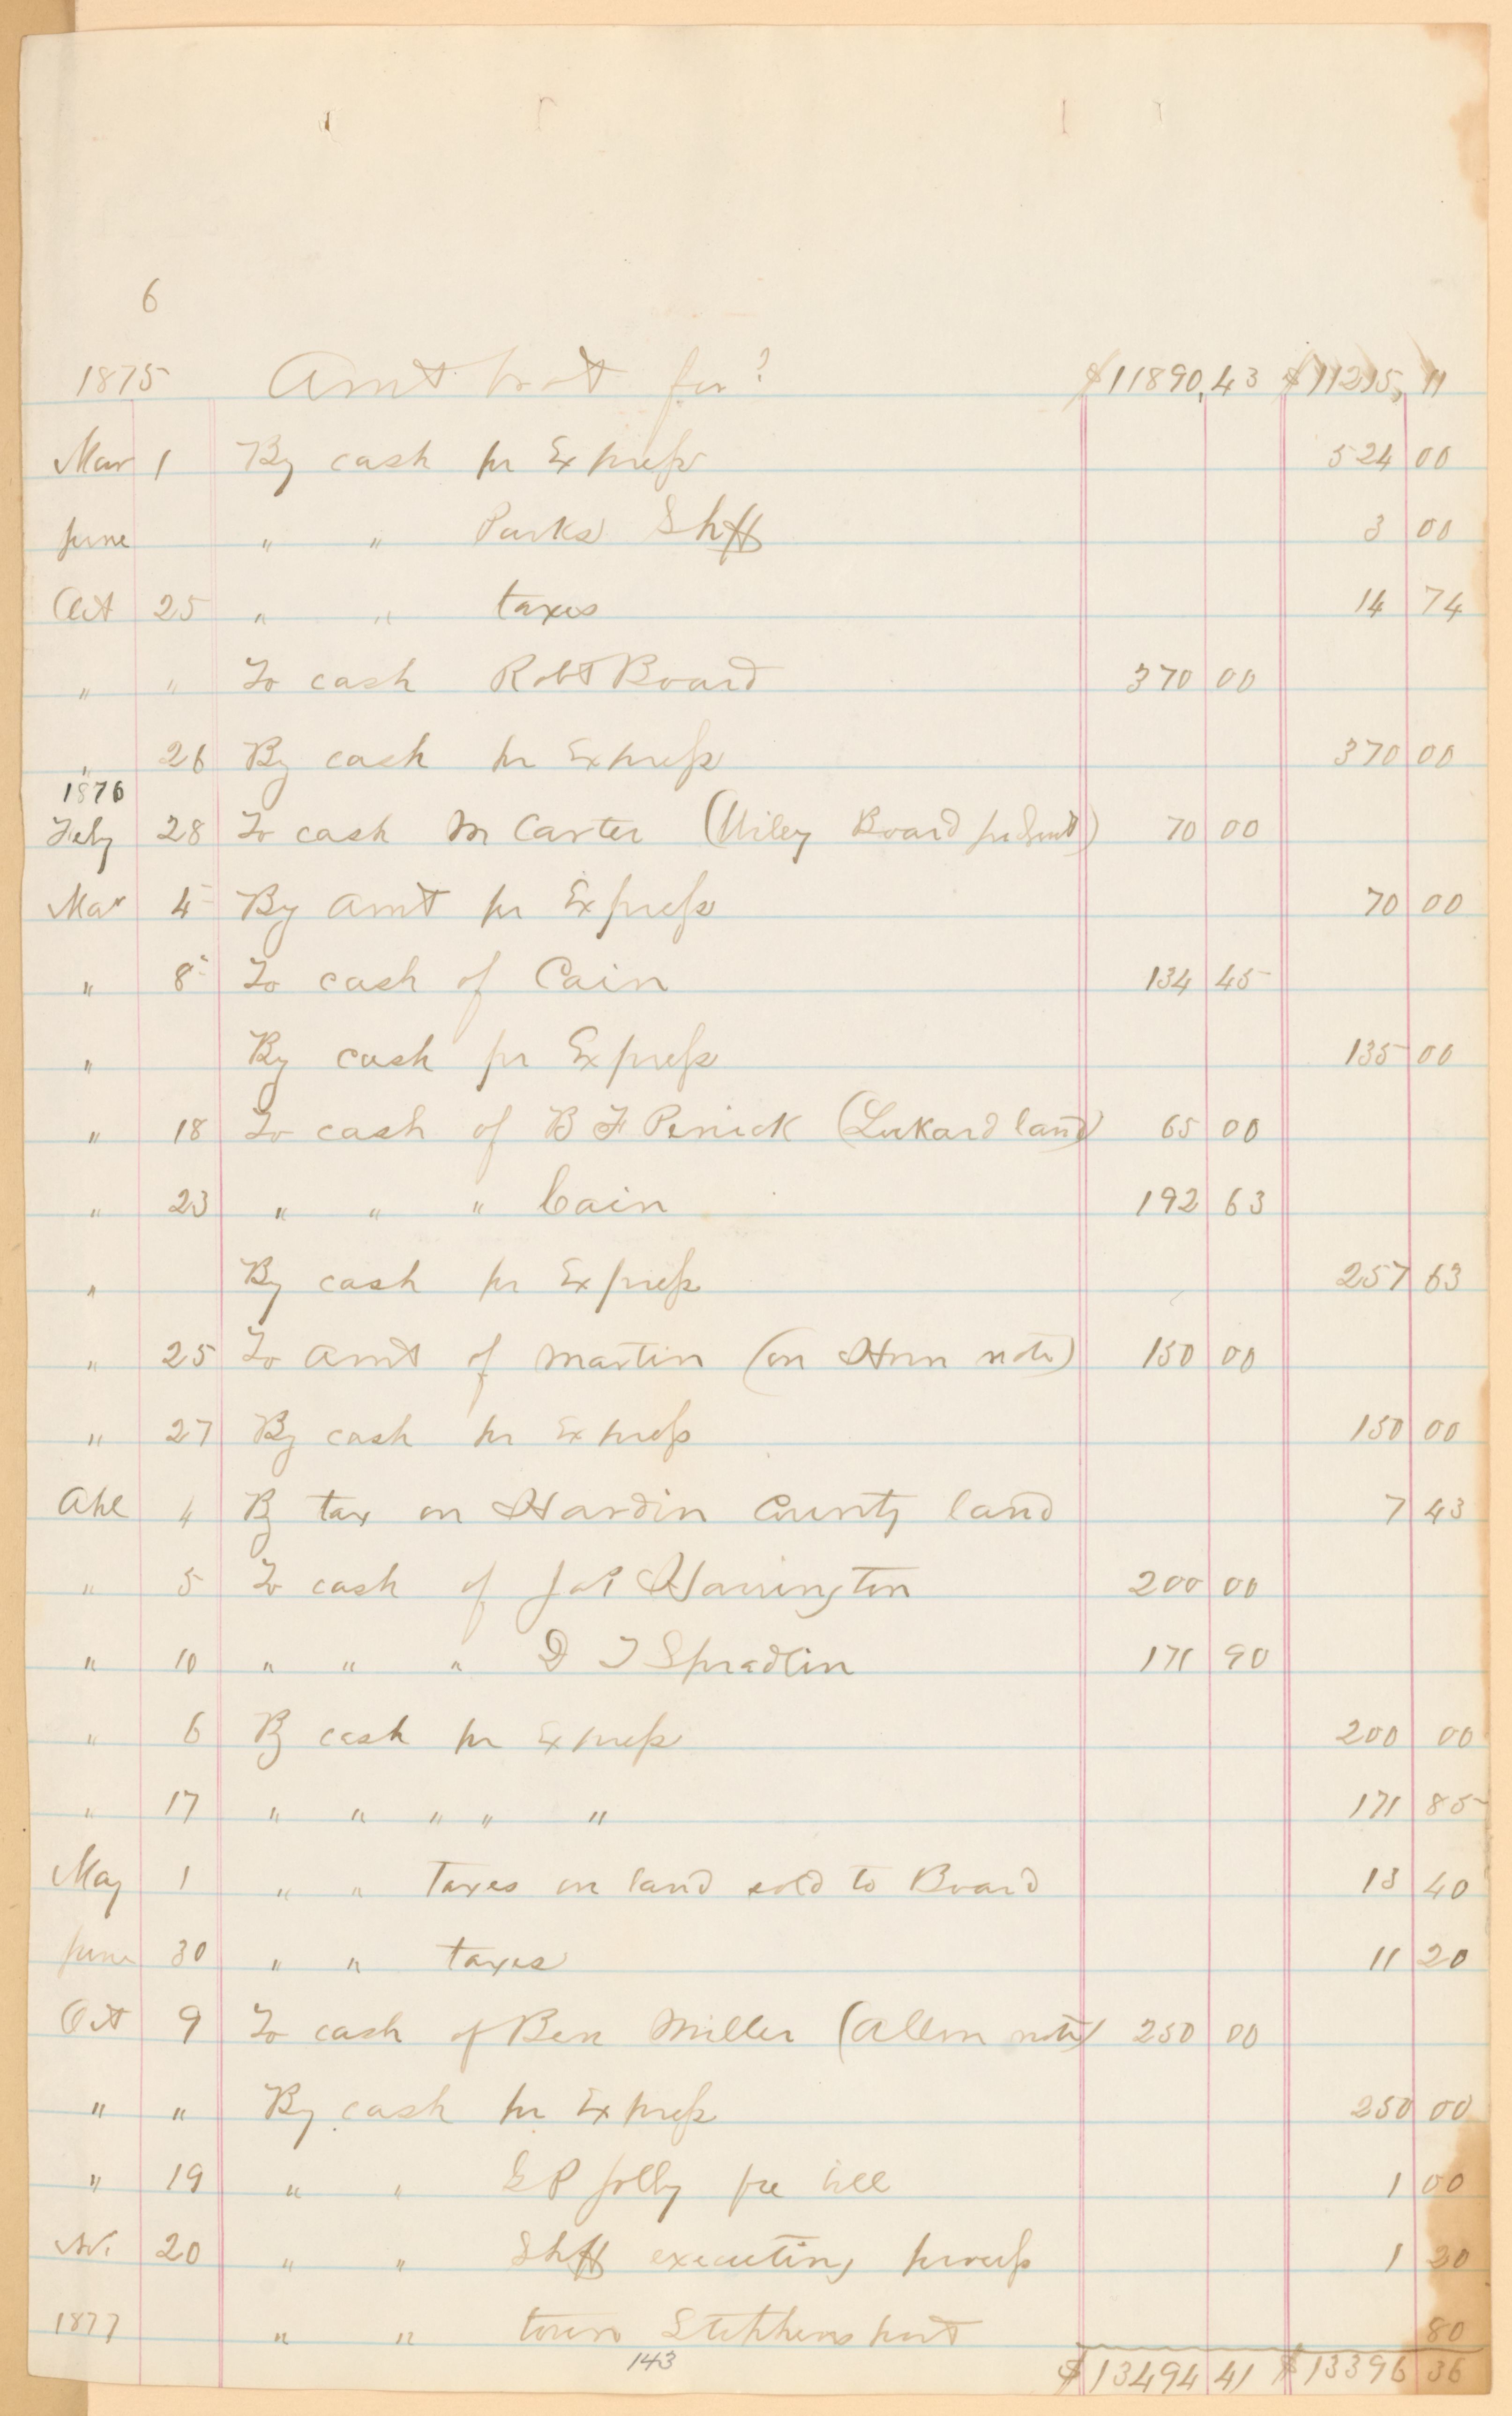 6
1875 Amt brot for? $11890.43 $11215, 11
Mar 1 By cash pr Express 524 00
June " " Parks Shff 3 00
Oct 25 " " taxes 14 74
" " To cash Robt Board 370 00
" 26 By cash pr Express 370 00
1876
Feby 28 To cash M Carter (Wiley Board) 70 00
Mar 4 By Amt pr Express 70 00
" 8 To cash of Cain 134 45
" By cash pr Express 135 00
" 18 To cash of B F Penick (Lukard land) 65 00
" 23 " " " Cain 192 63
" By cash pr Express 257 63
" 25 To Amt of Martin (on Horn note) 150 00
" 27 By cash pr Express 150 00
Apl 4 By tax on Hardin County land 7 43
" 5 To cash of Harrington 200 00
" 10 " " " D T Spradlin 171 90
" 6 By cash pr Express 200 00
" 17 " " " " " 171 85
May 1 " " Taxes on land sold to Board 13 40
June 30 " " taxes 11 20
Oct 9 To cash of Ben Miller (Allen note) 250 00
" " By cash pr Express 250 00
" 19 " " G P Jolly fee bill 1 00
Nv. 20 " " Shff executing process 1 20
1877 " " town Stephensport 80
143
$13494 41 $13396 36